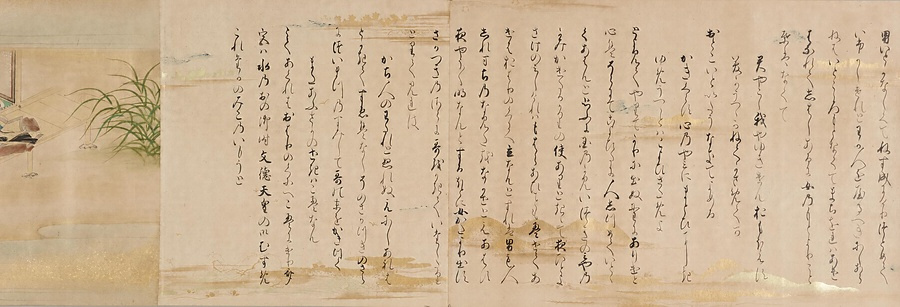 男いとかなしくてねす成にけりつとめて
いふかしけれとわか人をやるへきにしあら
ねはいと心もとなくてまちをれはあけ
はなれてしはしあるに女のもとより
ことはゝなくて
君やこし我やゆきけん於もほえす
夢かうつゝかねてかさめてか
おとこいといたうなきてよめる
かきくらす心のやみにまとひにき
ゆめうつゝとはこよひさためよ
とよみてやりてかりに出ぬ野にありけと
心はそらにてこよひたに人しつめていと
とくあはんと思ふに国のかみいつきの宮の
かみかけたるかりの使ありときゝて夜ひとよ
さけのみしけれはもはらあひこともえせてあ
けはおはりのくにへ立なんとすれは男も人
しれすちの涙をなかせとえあはす
夜やう〳〵明なんとするほとに女かたより出す
さかつきのさらに哥をかきていたしたり
とりて見れは
かち人のわたれとぬれぬえにしあれは
とかきてすゑはなしそのさかつきのさら
についまつのすみして哥の末をかきつく
またあふさかのせきはこえなん
とてあくれはおはりのくにへこえにけり斎
宮は水のおの御時文徳天皇の御むすめ
これたかのみこのいもうと